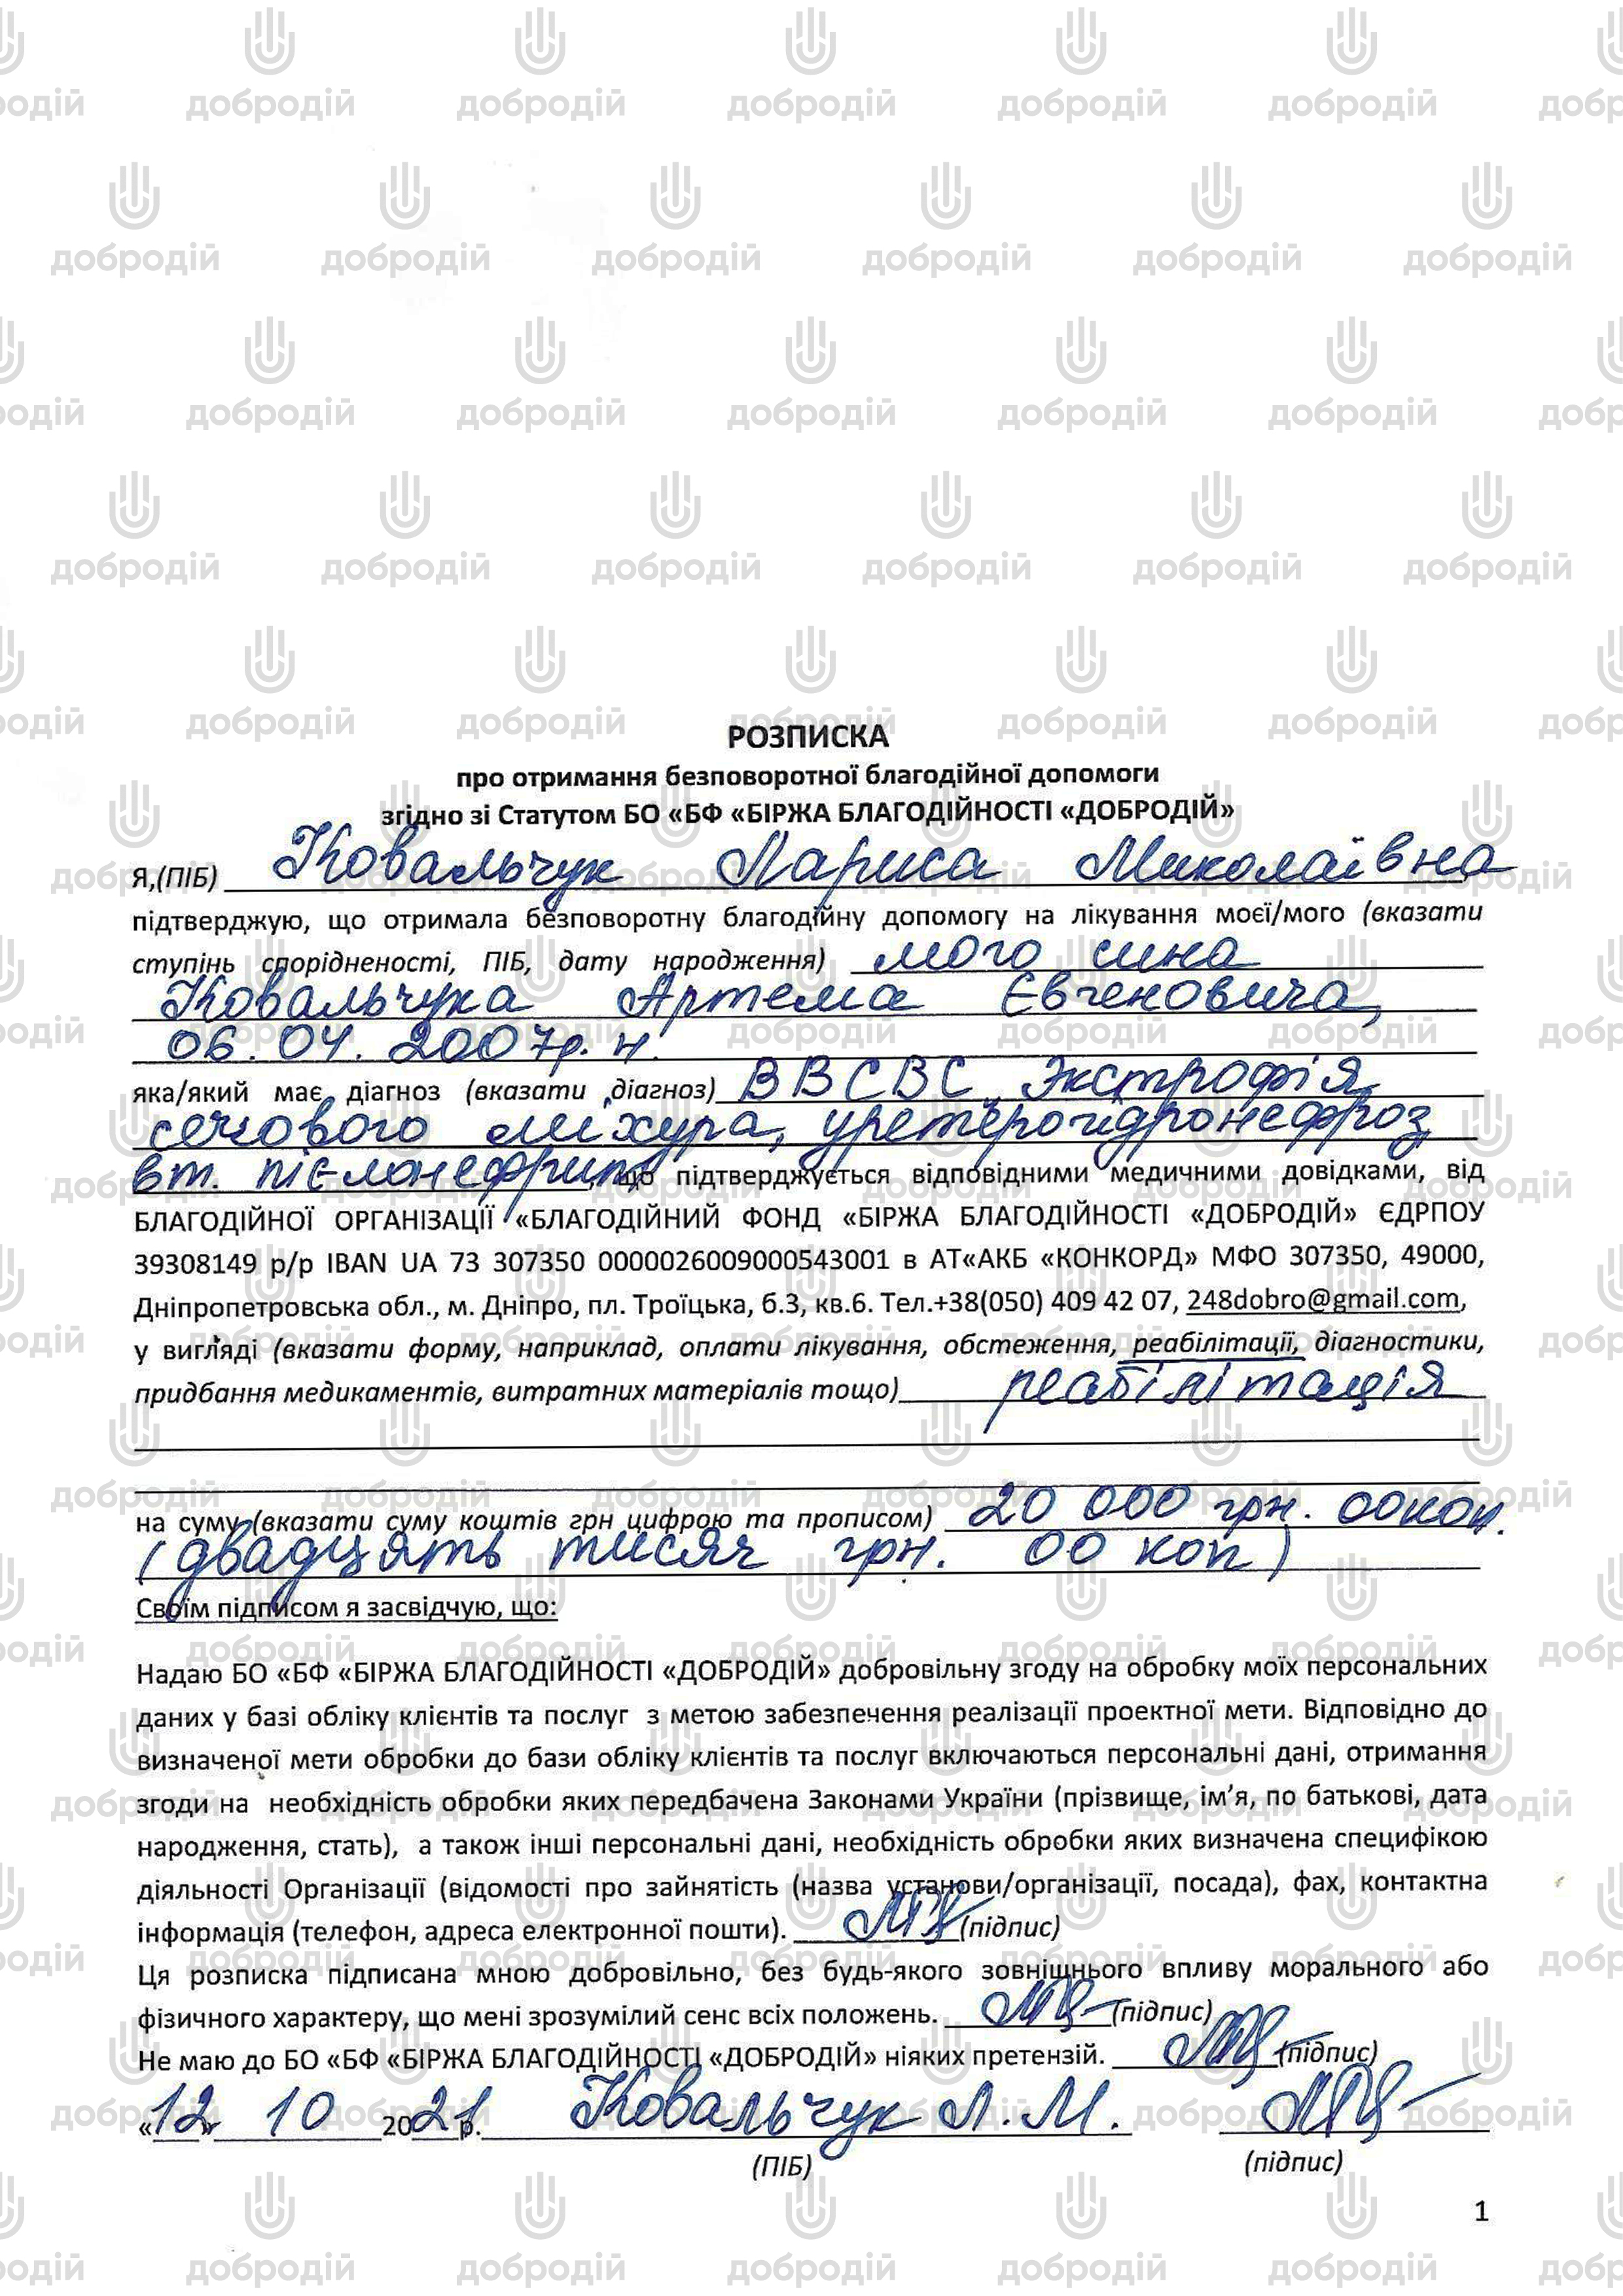 РОЗПИСКА
про отримання безповоротної благодійної допомоги
згідно зі Статутом БО «БФ «БІРЖА БЛАГОДІЙНОСТІ «ДОБРОДІЙ»
Я,(ПІБ) Ковальчук Лариса Миколаївна
підтверджую, що отримала безповоротну благодійну допомогу на лікування моєї/мого (вказати
ступінь спорідненості, ПІБ, дату народження) мого сина
Ковальчука Артема Євгеновича,
06.04.2007р.н.
яка/який має діагноз (вказати діагноз) ВВСВС Экстрофія
сечового міхура, уретерогідронефроз
вт. пієлонефрит, що підтверджується відповідними медичними довідками, від
БЛАГОДІЙНОЇ ОРГАНІЗАЦІЇ «БЛАГОДІЙНИЙ ФОНД «БІРЖА БЛАГОДІЙНОСТІ «ДОБРОДІЙ» ЄДРПОУ
39308149 р/р IBAN UA 73 307350 0000026009000543001 в АТ«АКБ «КОНКОРД» МФО 307350, 49000,
Дніпропетровська обл., м. Дніпро, пл. Троїцька, б.3, кв.6. Тел.+38(050) 409 42 07, 248dobro@gmail.com,
у вигляді (вказати форму, наприклад, оплати лікування, обстеження, реабілітації, діагностики,
придбання медикаментів, витратних матеріалів тощо) реабілітація
на суму (вказати суму коштів грн цифрою та прописом) 20 000 грн. 00коп.
(двадцять тисяч грн. 00 коп)
Своїм підписом я засвідчую, що:
Надаю БО «БФ «БІРЖА БЛАГОДІЙНОСТІ «ДОБРОДІЙ» добровільну згоду на обробку моїх персональних
даних у базі обліку клієнтів та послуг з метою забезпечення реалізації проектної мети. Відповідно до
визначеної мети обробки до бази обліку клієнтів та послуг включаються персональні дані, отримання
згоди на необхідність обробки яких передбачена Законами України (прізвище, ім'я, по батькові, дата
народження, стать), а також інші персональні дані, необхідність обробки яких визначена специфікою
діяльності Організації (відомості про зайнятість (назва установи/організації, посада), фах, контактна
інформація (телефон, адреса електронної пошти). (підпис)
Ця розписка підписана мною добровільно, без будь-якого зовнішнього впливу морального або
фізичного характеру, що мені зрозумілий сенс всіх положень. (підпис)
Не маю до БО «БФ «БІРЖА БЛАГОДІЙНОСТІ «ДОБРОДІЙ» ніяких претензій. (підпис)
«12» 10 2021р. Ковальчук Л.М.
(ПІБ) (підпис)
1